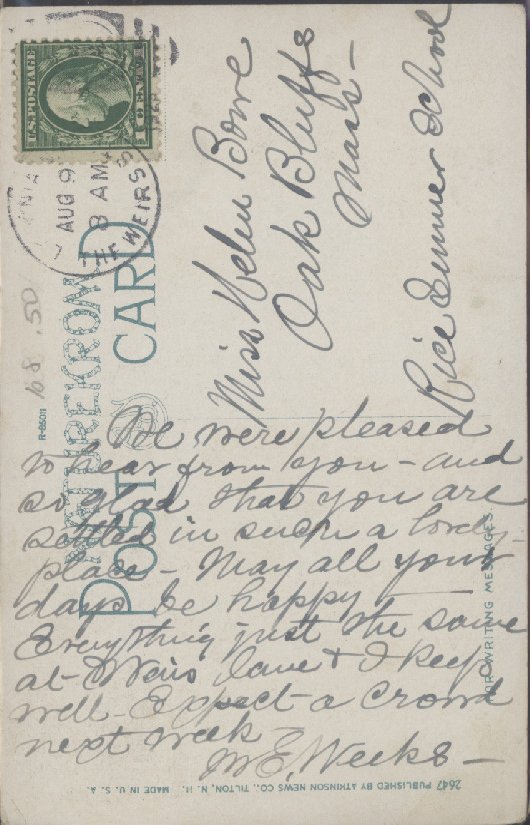 U.S. POSTAGE
1 CENT 1
AUG 9
8 AM
THE WEIRS
NATUREKROM
POST CARD
R-85011
68 .50
Miss Helen Bowe
Oak Bluffs
Mass-
Rice Summer School
We were pleased
to hear from you - and
so glad that you are
settled in such a lovely
place - May all your
days be happy -
Everything just the same
at Weirs Jane & I keep
well - Expect a crowd
next week
M E, Weeks -
FOR WRITING MESSAGES
2647 PUBLISHED BY ATKINSON NEWS CO., TILTON, N. H. MADE IN U. S. A.